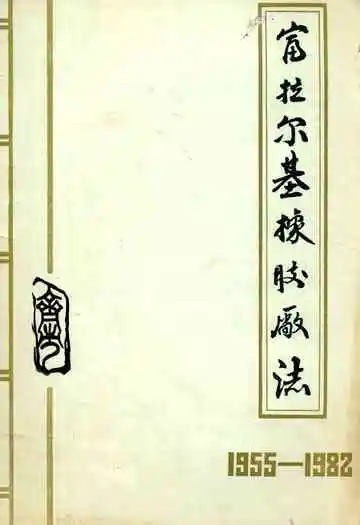 富拉尔基橡胶廠志
1955—1982